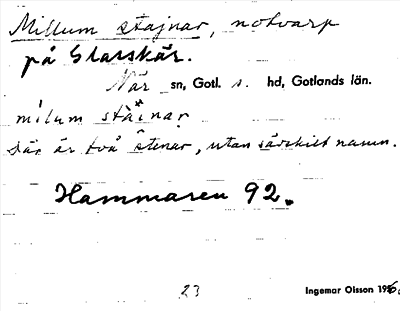 Millum stajnar, notvarp
på Glasskär.
När sn, Gotl. s. hd, Gotlands län.
milum stäinar
Där är två stenar, utan särskilt namn.
Hammaren 92.
23 Ingemar Olsson 196